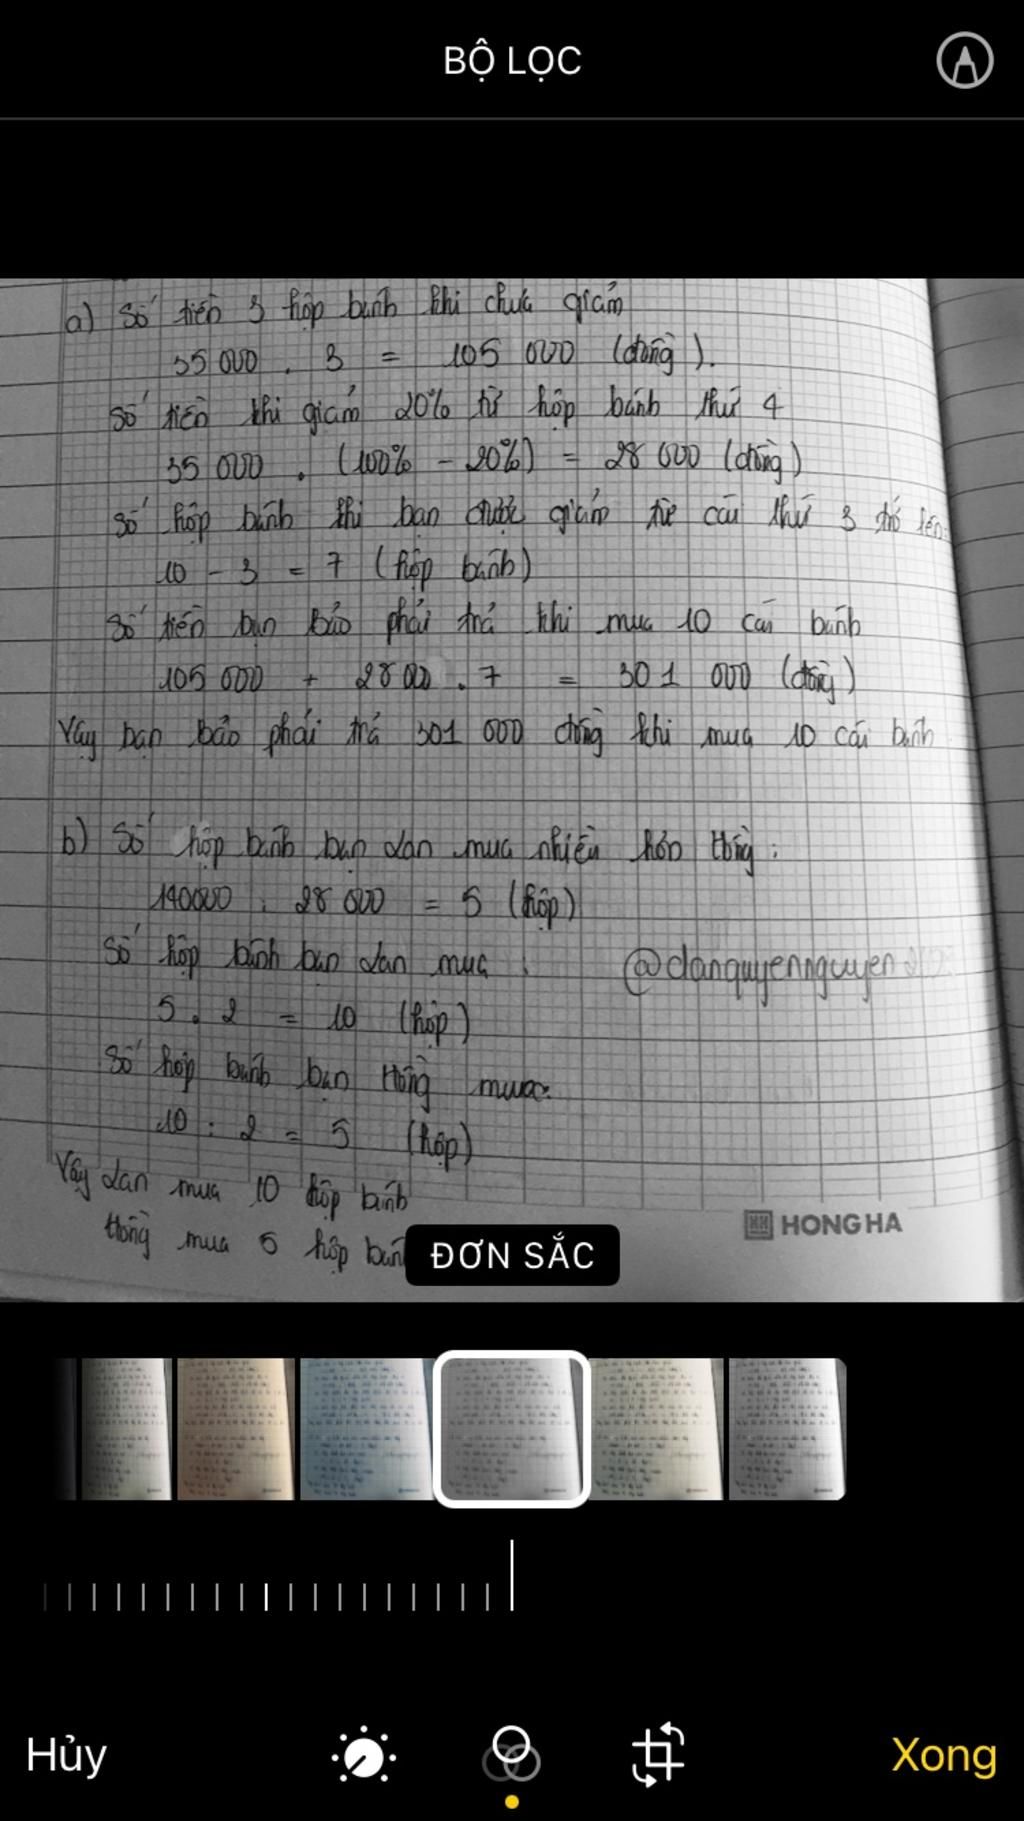 BỘ LỌC
a) Số tiền 3 hộp bánh khi chưa giảm
35 000 . 3 = 105 000 (đồng).
Số tiền khi giảm 20% từ hộp bánh thứ 4
35 000 . (100% - 20%) = 28 000 (đồng)
Số hộp bánh khi bạn được giảm từ cái thứ 3 trở lên:
10 - 3 = 7 (hộp bánh)
Số tiền bạn bảo phải trả khi mua 10 cái bánh
105 000 + 28 000 . 7 = 301 000 (đồng)
Vậy bạn bảo phải trả 301 000 đồng khi mua 10 cái bánh
b) Số hộp bánh bạn Lan mua nhiều hơn Hồng :
140000 : 28 000 = 5 (hộp)
Số hộp bánh bạn Lan mua :
@danquyennguyen
5 . 2 = 10 (hộp)
Số hộp bánh bạn Hồng mua:
10 : 2 = 5 (hộp)
Vậy Lan mua 10 hộp bánh
Hồng mua 5 hộp bánh
HONG HA
ĐƠN SẮC
Hủy
Xong